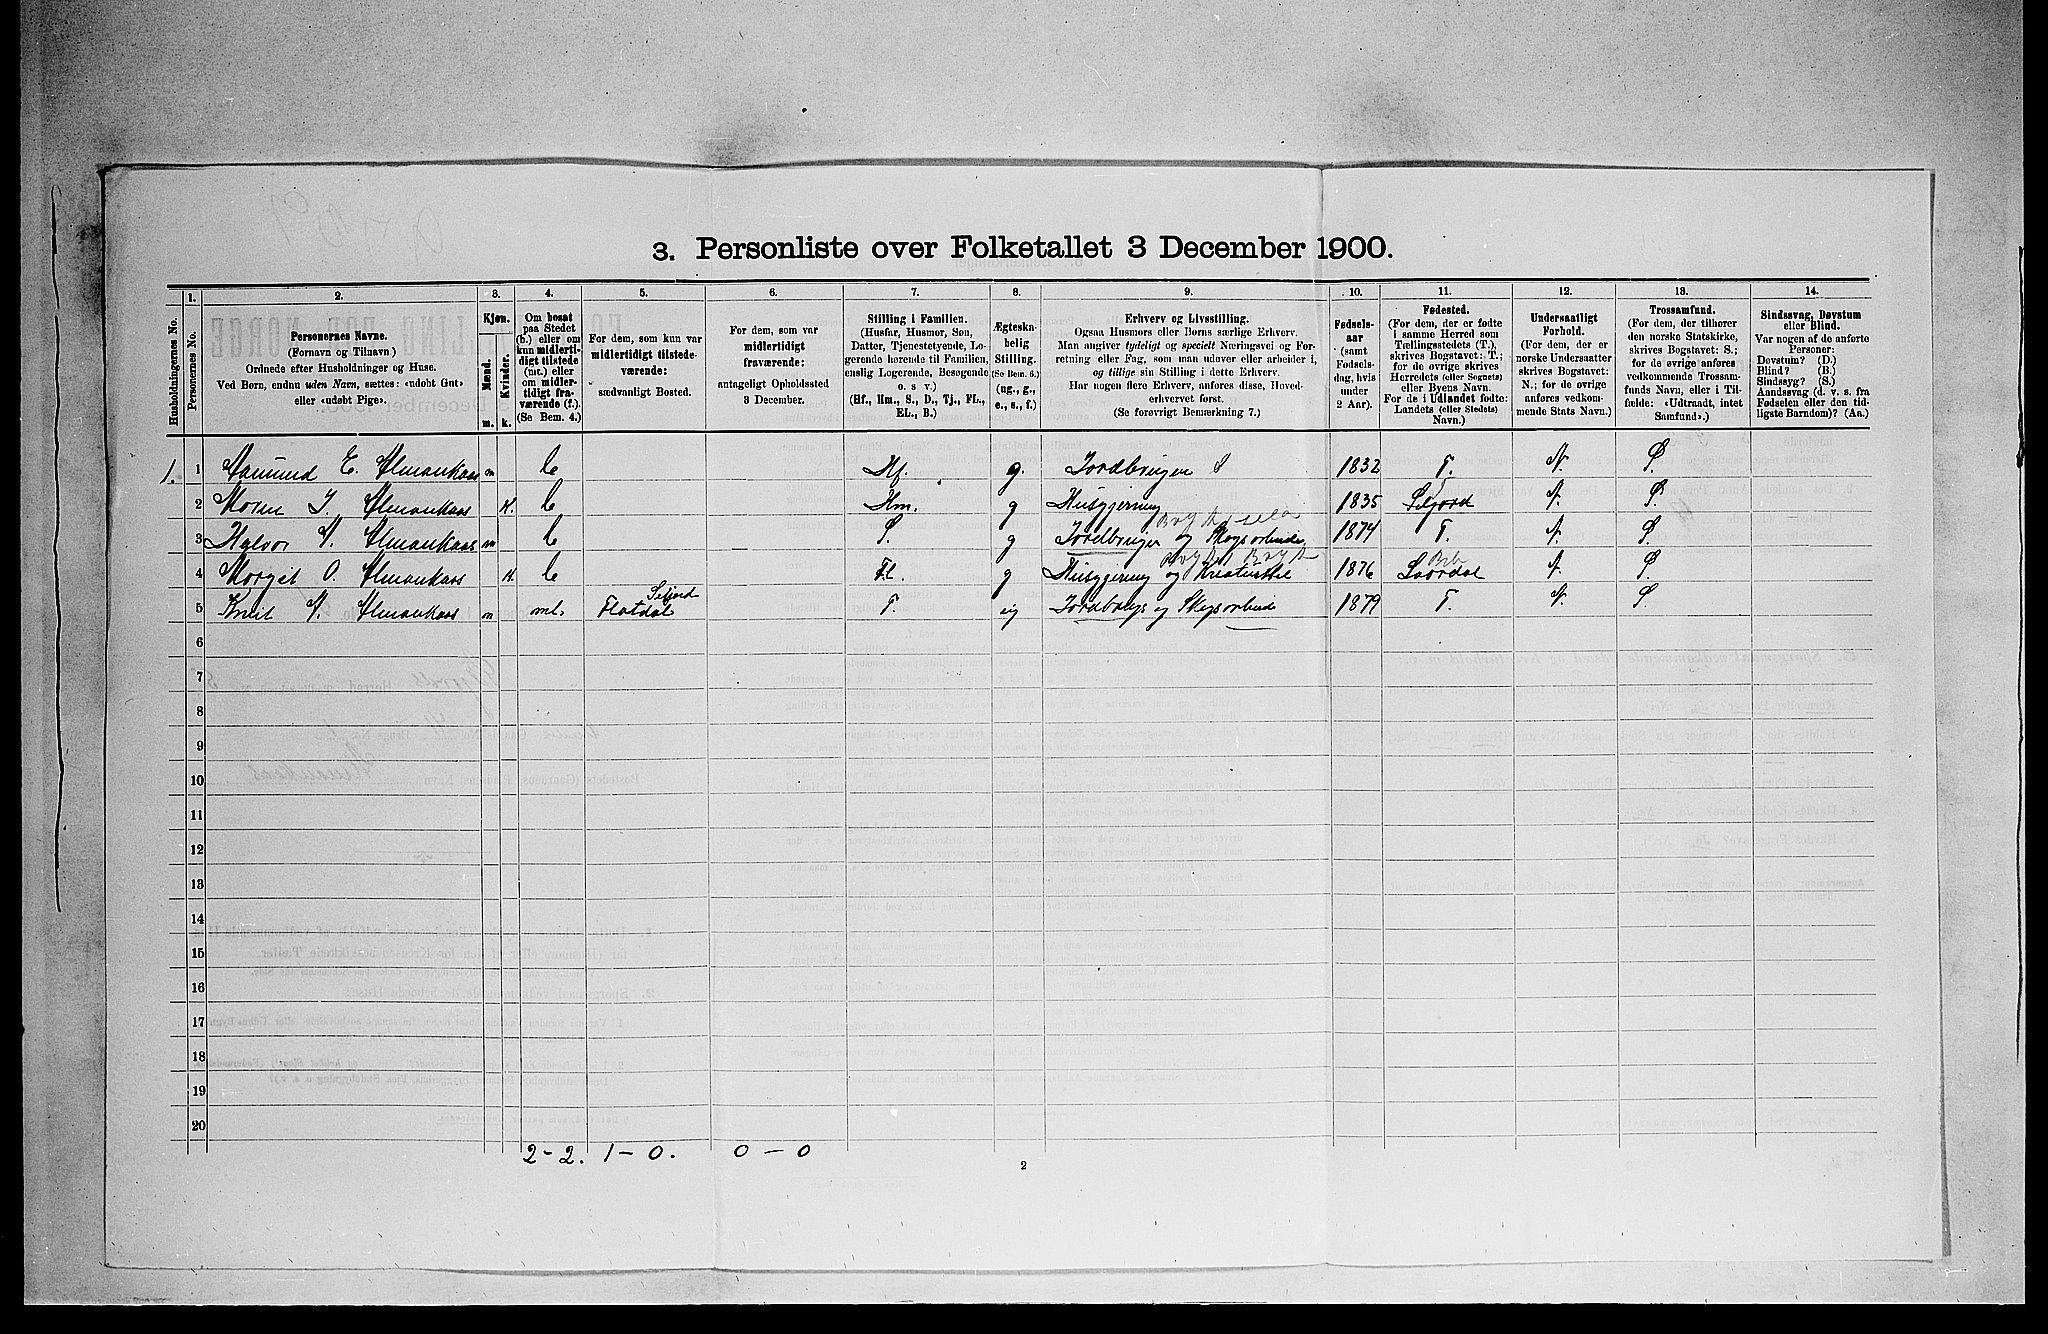 3. Personliste over Folketallet 3 December 1900.
Husholdningernes No.
1.
Personernes No.
2.
Personernes Navne.
(Fornavn og Tilnavn.)
Ordnede efter Husholdninger og Huse.
Ved Børn, endnu uden Navn, sættes: «udøbt Gut»
eller «udøbt Pige».
3.
Kjøn.
Mænd.
m.
Kvinder.
k.
4.
Om bosat
paa Stedet
(b.) eller om
kun midlerti-
digt tilstede
(mt.) eller
om midler-
tidigt fra-
værende (f.).
(Se Bem. 4.)
5.
For dem, som kun var
midlertidigt tilstede-
værende:
sædvanligt Bosted.
6.
For dem, som var
midlertidigt
fraværende:
antageligt Opholdssted
3 December.
7.
Stilling i Familien.
(Husfar, Husmor, Søn,
Datter, Tjenestetyende, Lo-
gerende hørende til Familien,
enslig Logerende, Besøgende
o. s v.)
(Hf., Hm., S., D., Tj., FL.,
EL., B.)
8.
Ægteska-
belig
Stilling.
(Se Bem. 6.)
(ug., g.,
e., s., f.)
9.
Erhverv og Livsstilling.
Ogsaa Husmors eller Børns særlige Erhverv.
Man angiver tydeligt og specielt Næringsvei og For-
retning eller Fag, som man udøver eller arbeider i,
og tillige sin Stilling i dette Erhverv.
Har nogen flere Erhverv, anføres disse, Hoved-
erhvervet først.
(Se forøvrigt Bemærkning 7.)
10.
Fødsels-
aar
(samt
Fødsels-
dag, hvis
under
2 Aar).
11.
Fødested.
(For dem, der er fødte
i samme Herred som
Tællingsstedets (T.),
skrives Bogstavet: T.;
for de øvrige skrives
Herredets (eller Sognets)
eller Byens Navn.
For de i Udlandet fødte:
Landets (eller Stedets)
Navn.)
12.
Undersaatligt
Forhold.
(For dem, der er
norske Undersaatter
skrives Bogstavet:
N.; for de øvrige
anføres vedkom-
mende Stats Navn.)
13.
Trossamfund.
(For dem, der tilhører
den norske Statskirke,
skrives Bogstavet: S.;
for de øvrige anføres
vedkommende Trossam-
funds Navn, eller i Til-
fælde: «Udtraadt, intet
Samfund».)
14.
Sindssvag, Døvstum
eller Blind.
Var nogen af de anførte
Personer:
Døvstum? (D.)
Blind? (B.)
Sindssyg? (S.)
Aandssvag (d. v. s. fra
Fødselen eller den tid-
ligste Barndom)? (Aa.)
1. 1 Aamund E. Almankaas m b Hf. g. Jordbruger S 1832 T. N. S.
2 Almankaas K. b Hm. g Husgjerning 1835 Seljord N. S.
3 Halvor A. Almankaas m b S. g Jordbruger og Skogsarbeide 1874 T. N. S.
4 Margit O. Almankaas K. b FL. g Husgjerning og Kreaturstel 1876 Laardal N. S.
5 Knut A. Almankaas m mt. Flatdal Seljord T. ug Jordbrugs og Skogsarbeide 1879 T. N. S.
6
7
8
9
10
11
12
13
14
15
16
17
18
19
20
2 - 2. 1 - 0. 0 - 0
2